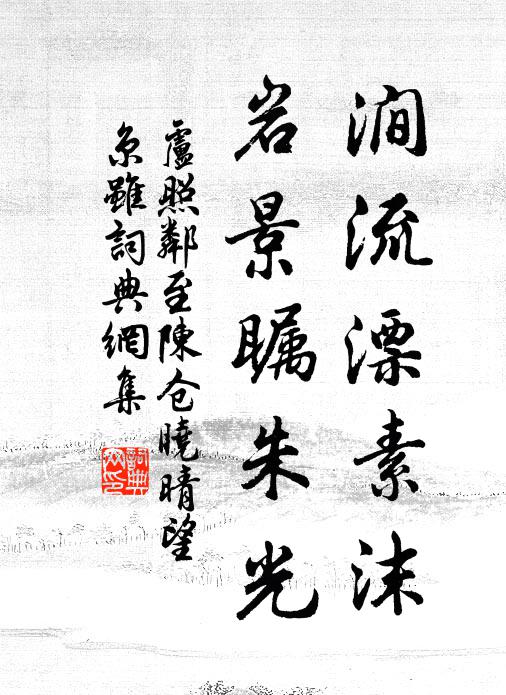 涧流漂素沫
岩景瞩朱光
盧照鄰至陳仓曉晴望
京雖詞典網集